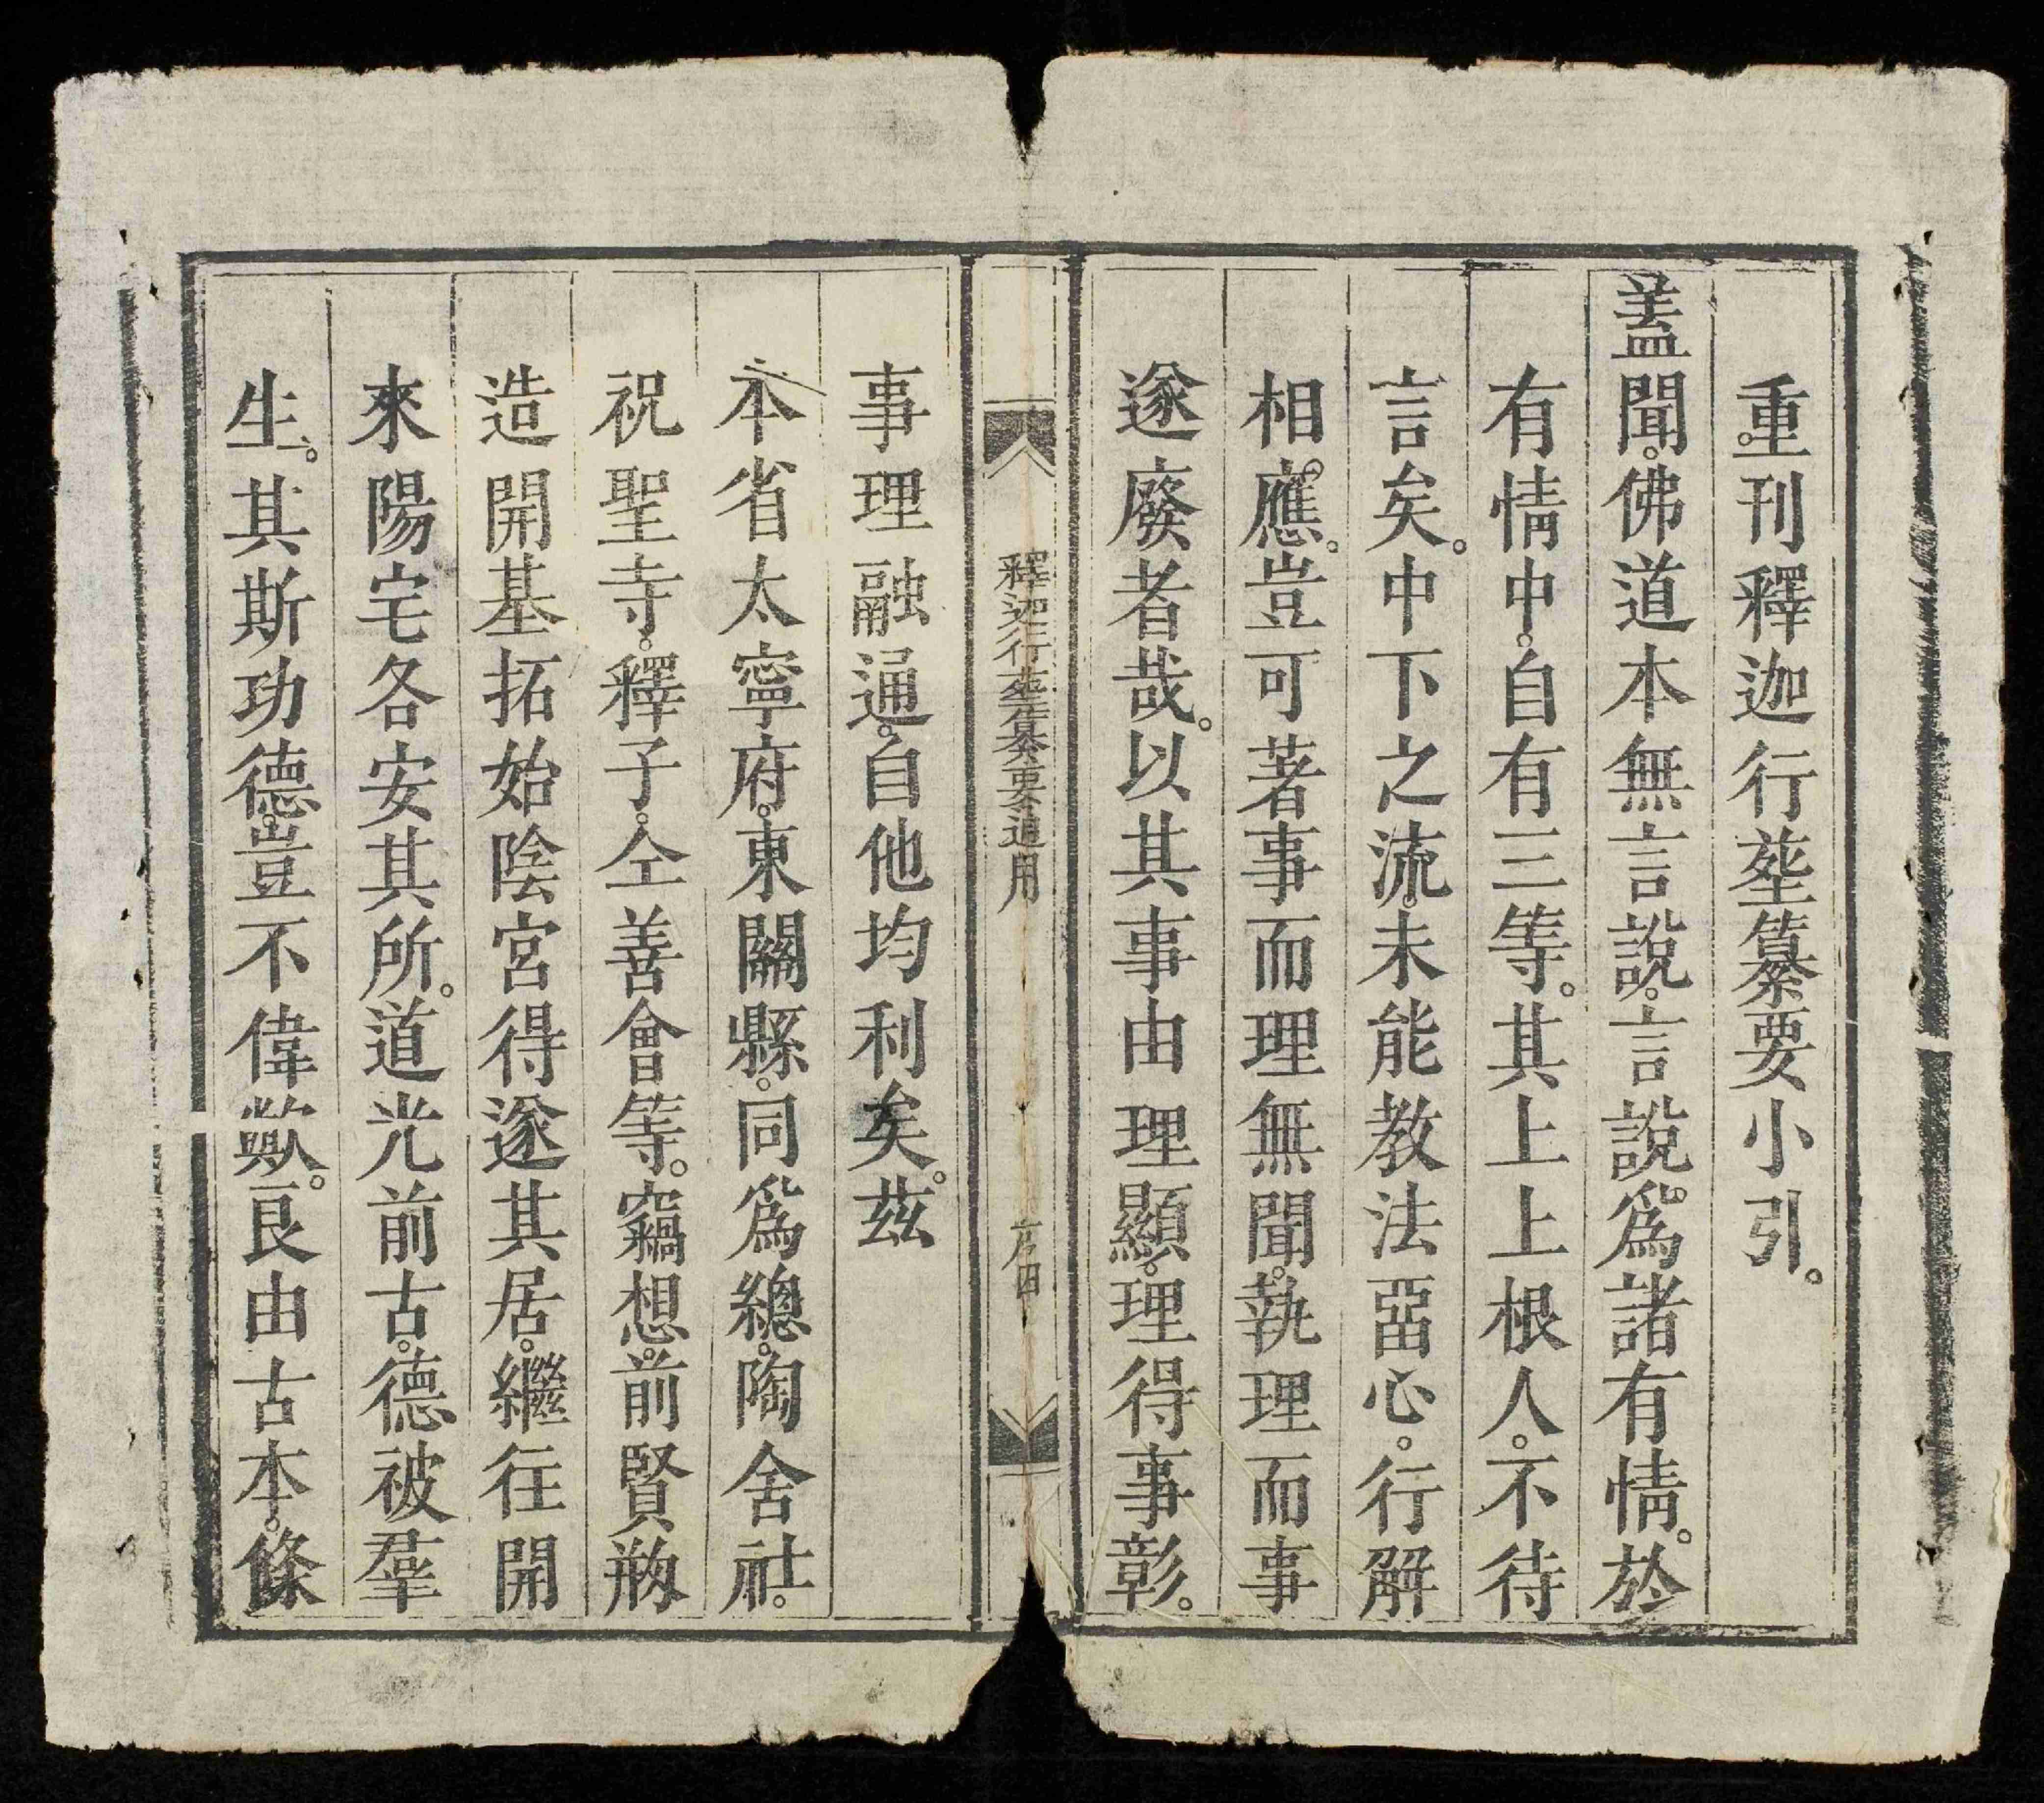 重刊釋迦行塟纂要小引。
蓋聞。佛道本無言說。言說。爲諸有情。於
有情中。自有三等。其上上根人。不待
言矣。中下之流。未能教法㗁心。行解
相應。豈可著事而理無聞。執理而事
遂廢者哉。以其事由理顯。理得事彰。
釋迦行塟纂要通用
序四
事理融通。自他均利矣。茲
本省太寧府。東關縣。同爲總。陶舍社。
祝聖寺。釋子。仝善會等。竊想。前賢刱
造開基拓始陰宮得遂其居。繼往開
來陽宅各安其所。道光前古。德被羣
生。其斯功德。豈不偉歟。良由古本。條